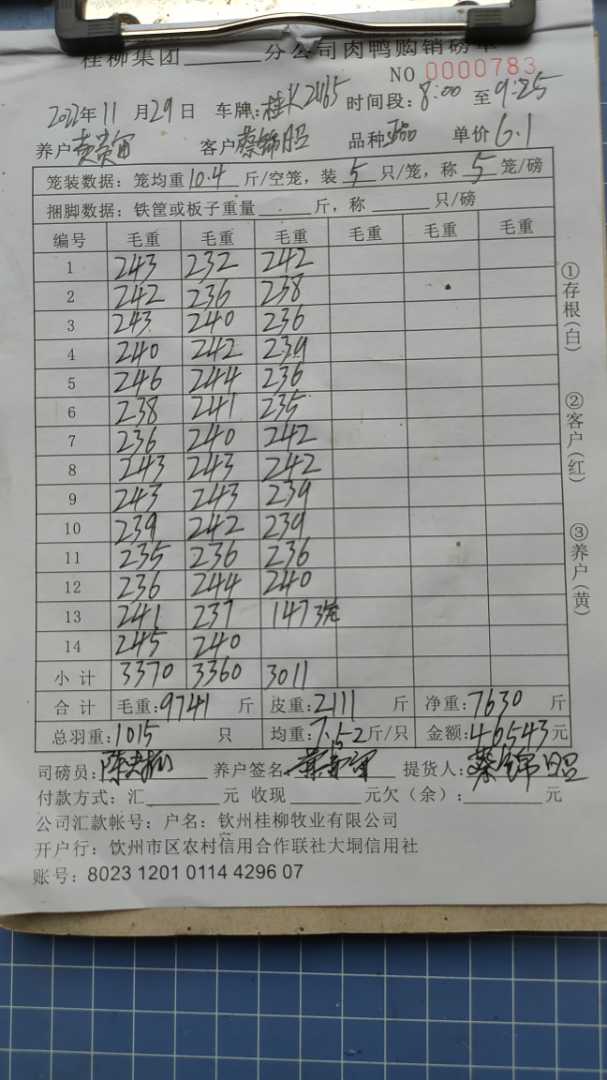 桂柳集团______分公司肉鸭购销磅单
NO 0000783
2022年 11 月 29 日 车牌: 桂K2465 时间段: 8:00 至 9:25
养户 黄贵富 客户 蔡锦昭 品种 单价 6.1
笼装数据: 笼均重 10.4 斤/空笼, 装 5 只/笼, 称 5 笼/磅
捆脚数据: 铁筐或板子重量______斤, 称______只/磅
编号 毛重 毛重 毛重 毛重 毛重 毛重
1 243 232 242
2 242 236 238
3 243 240 236
4 240 242 239
5 246 244 236
6 238 241 235
7 236 240 242
8 243 243 242
9 243 243 239
10 239 242 239
11 235 236 236
12 236 244 240
13 241 237 147 3笼
14 245 240
小计 3370 3360 3011
合计 毛重: 9741 斤 皮重: 2111 斤 净重: 7630 斤
总羽重: 1015 只 均重: 7.52 斤/只 金额: 46543 元
司磅员: 陈 养户签名: 黄贵富 提货人: 蔡锦昭
付款方式: 汇______元 收现______元欠(余): ______元
公司汇款帐号: 户名: 钦州桂柳牧业有限公司
开户行: 饮州市区农村信用合作联社大垌信用社
账号: 8023 1201 0114 4296 07
①存根(白)
②客户(红)
③养户(黄)